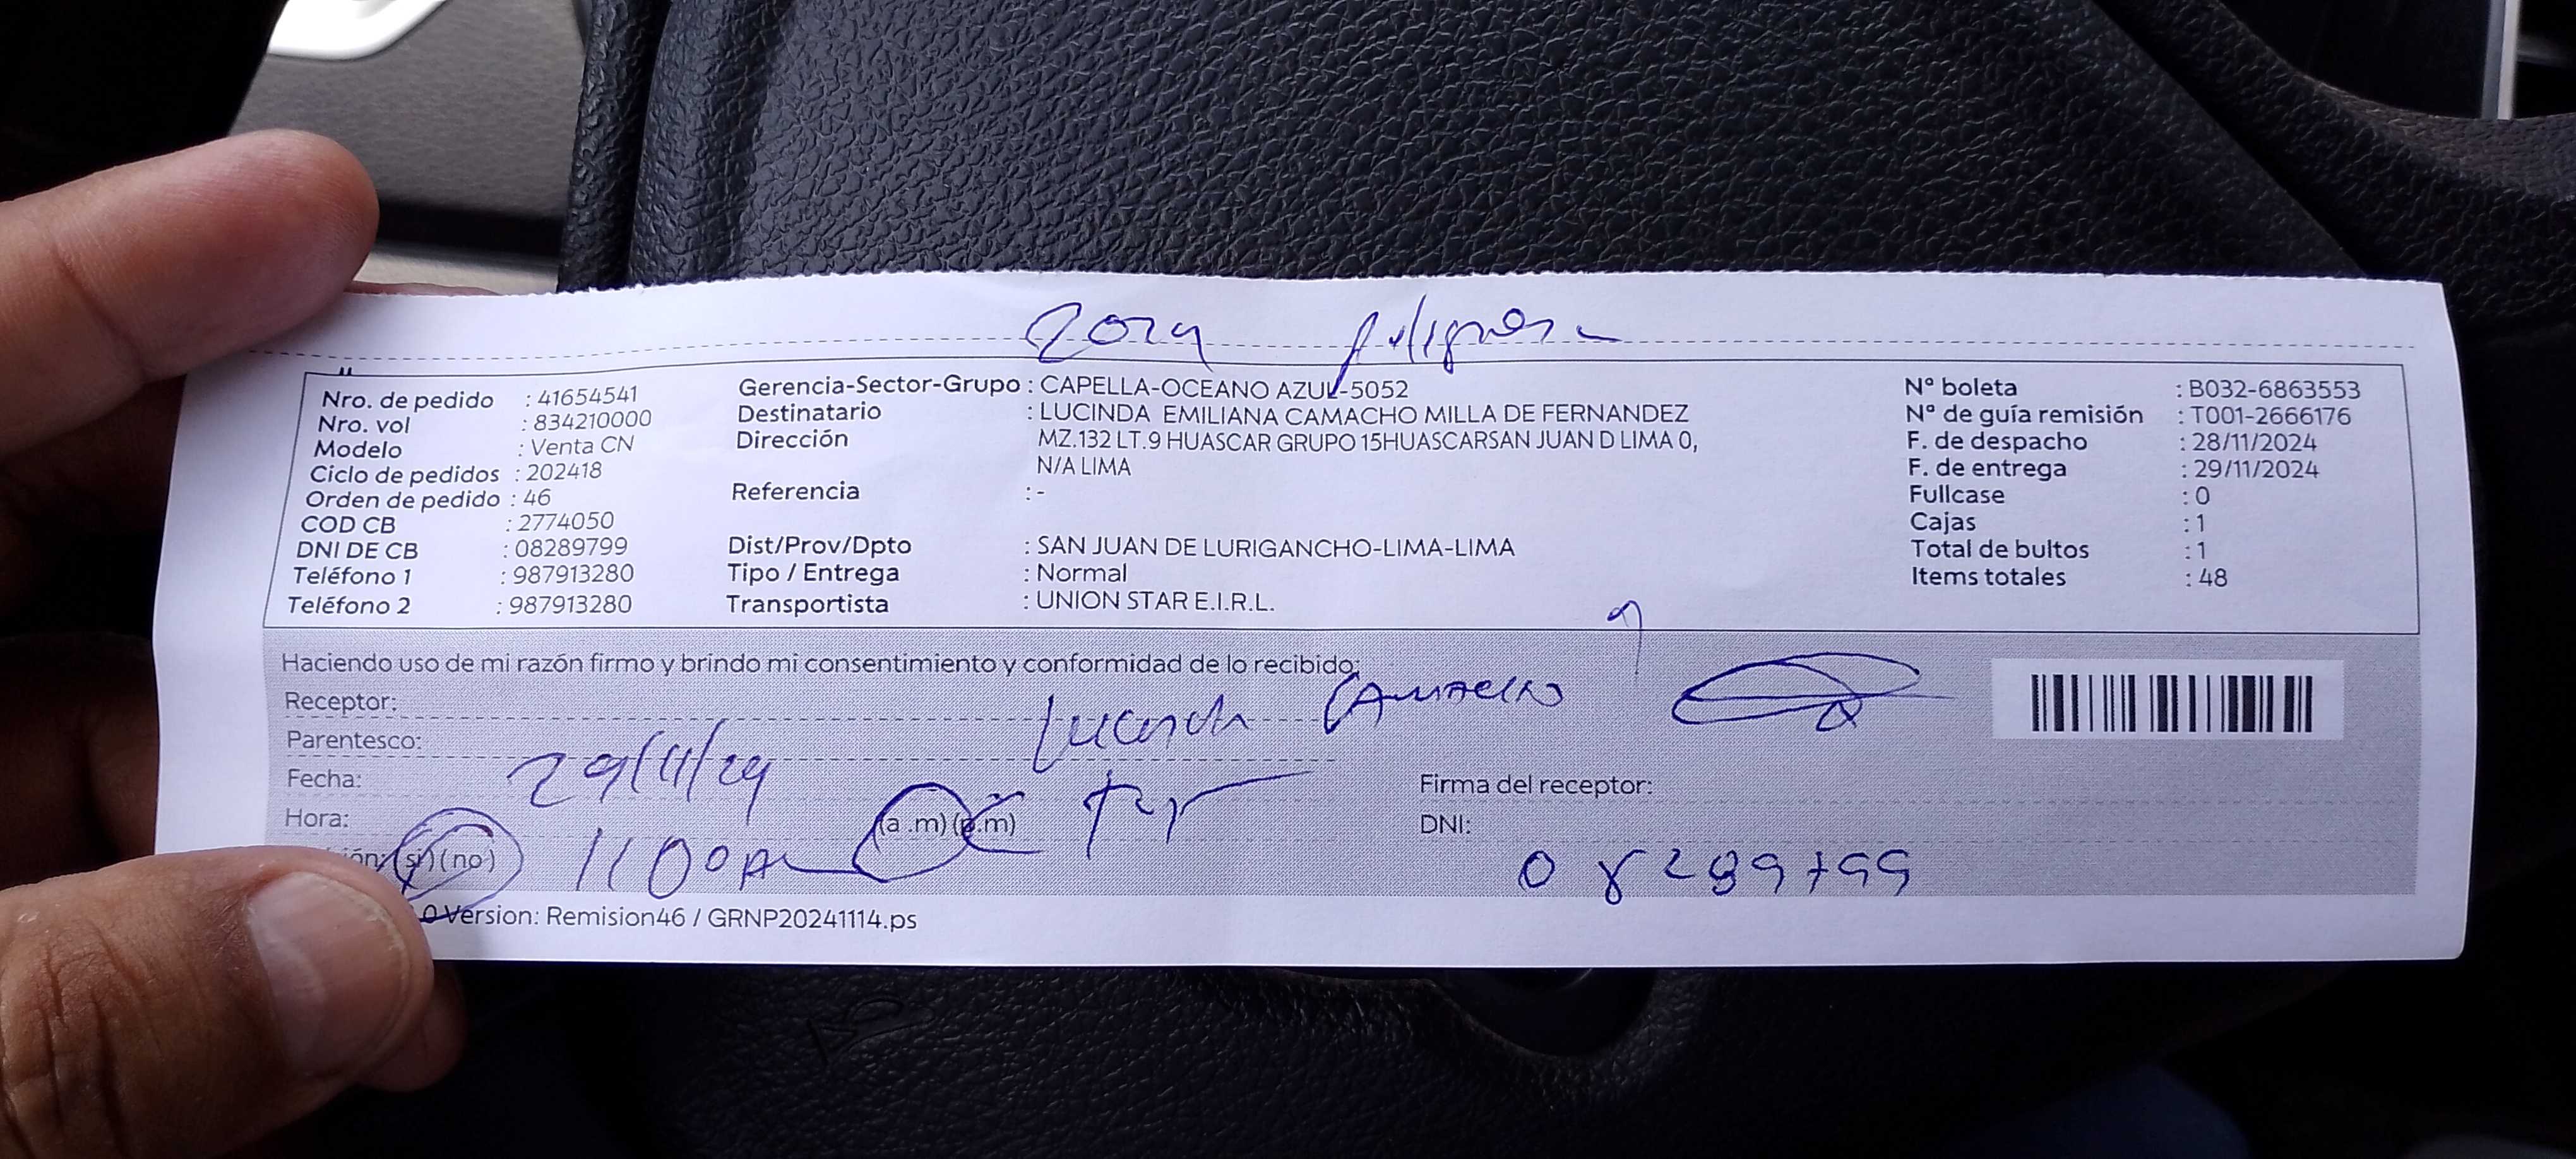 Zona peligrosa
Nro. de pedido : 41654541
Nro. vol : 834210000
Modelo : Venta CN
Ciclo de pedidos : 202418
Orden de pedido : 46
COD CB : 2774050
DNI DE CB : 08289799
Teléfono 1 : 987913280
Teléfono 2 : 987913280
Gerencia-Sector-Grupo : CAPELLA-OCEANO AZUL-5052
Destinatario : LUCINDA EMILIANA CAMACHO MILLA DE FERNANDEZ
Dirección MZ.132 LT.9 HUASCAR GRUPO 15HUASCARSAN JUAN D LIMA 0,
N/A LIMA
Referencia : -
Dist/Prov/Dpto : SAN JUAN DE LURIGANCHO-LIMA-LIMA
Tipo / Entrega : Normal
Transportista : UNION STAR E.I.R.L.
Nº boleta : B032-6863553
Nº de guía remisión : T001-2666176
F. de despacho : 28/11/2024
F. de entrega : 29/11/2024
Fullcase : 0
Cajas : 1
Total de bultos : 1
Items totales : 48
Haciendo uso de mi razón firmo y brindo mi consentimiento y conformidad de lo recibido:
Receptor: Lucinda Camacho
Parentesco:
Fecha: 29/11/24
Hora: 1100 (a.m) (p.m)
(si) (no)
Firma del receptor:
DNI: 08289799
Version: Remision46 / GRNP20241114.ps